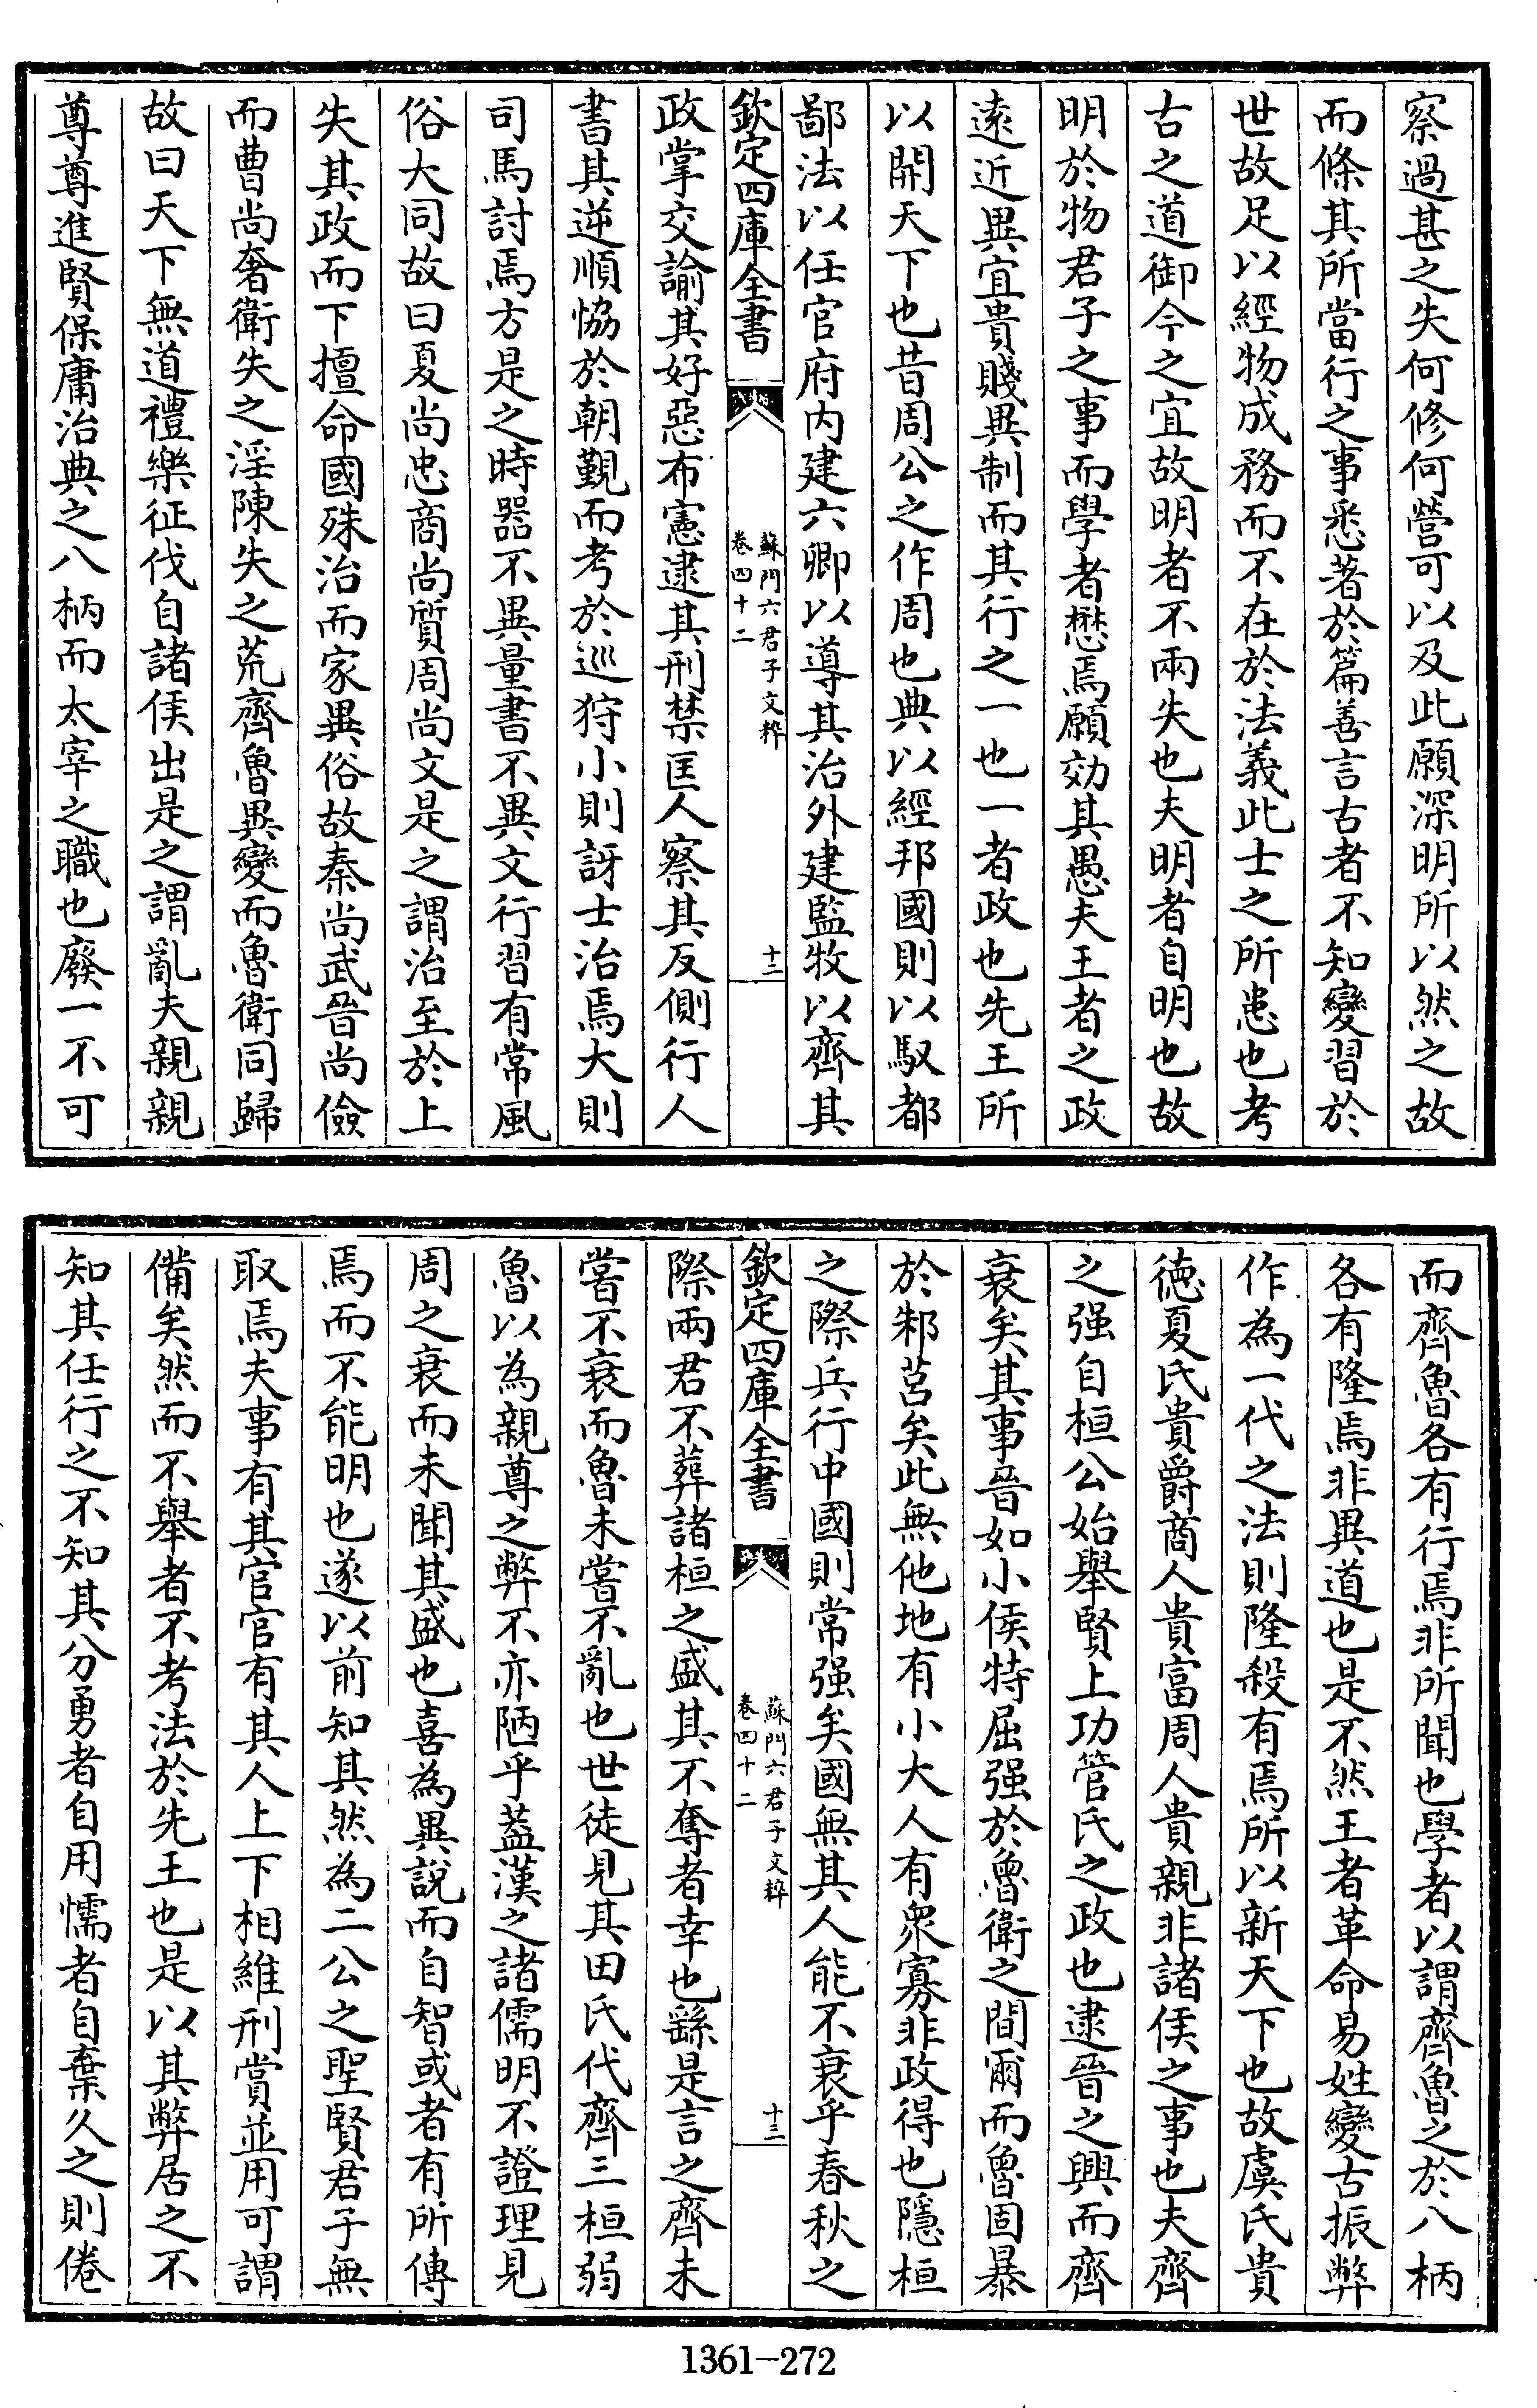 察過甚之失何修何營可以及此願深明所以然之故
而條其所當行之事悉著於篇善言古者不知變習於
世故足以經物成務而不在於法義此士之所患也考
古之道御今之宜故明者不兩失也夫明者自明也故
明於物君子之事而學者懋焉願効其愚夫王者之政
遠近異宜貴賤異制而其行之一也一者政也先王所
以開天下也昔周公之作周也典以經邦國則以馭都
鄙法以任官府内建六卿以導其治外建監牧以齊其
欽定四庫全書
蘇門六君子文粹
卷四十二
十二
政掌交諭其好惡布憲逮其刑禁匡人察其反側行人
書其逆順恊於朝覲而考於巡狩小則訝士治焉大則
司馬討焉方是之時器不異量書不異文行習有常風
俗大同故曰夏尚忠商尚質周尚文是之謂治至於上
失其政而下擅命國殊治而家異俗故秦尚武晉尚儉
而曹尚奢衛失之淫陳失之荒齊魯異變而魯衛同歸
故曰天下無道禮樂征伐自諸侯出是之謂亂夫親親
尊尊進賢保庸治典之八柄而太宰之職也廢一不可
而齊魯各有行焉非所聞也學者以謂齊魯之於八柄
各有隆焉非異道也是不然王者革命易姓變古振弊
作為一代之法則隆殺有焉所以新天下也故虞氏貴
徳夏氏貴爵商人貴富周人貴親非諸侯之事也夫齊
之强自桓公始舉賢上功管氏之政也逮晉之興而齊
衰矣其事晉如小侯特屈强於魯衛之間爾而魯固暴
於邾莒矣此無他地有小大人有衆寡非政得也隱桓
之際兵行中國則常强矣國無其人能不衰乎春秋之
欽定四庫全書
蘇門六君子文粹
卷四十二
十三
際兩君不葬諸桓之盛其不奪者幸也繇是言之齊未
嘗不衰而魯未嘗不亂也世徒見其田氏代齊三桓弱
魯以為親尊之弊不亦陋乎葢漢之諸儒明不證理見
周之衰而未聞其盛也喜為異說而自智或者有所傳
焉而不能明也遂以前知其然為二公之聖賢君子無
取焉夫事有其官官有其人上下相維刑賞並用可謂
備矣然而不舉者不考法於先王也是以其弊居之不
知其任行之不知其分勇者自用懦者自棄久之則倦
1361-272